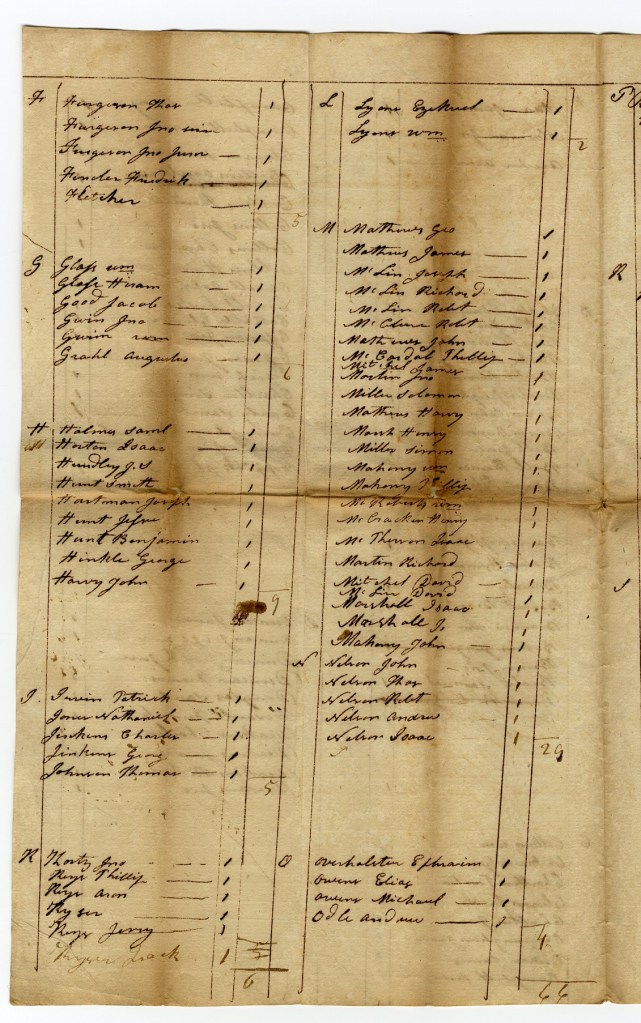 F Furgeson Thos 1
Furgeson Jno sein 1
Furgeson Jno Junr — 1
Fender Fredrick — 1
Fletcher — 1
5
G Glass wm — 1
Glass Hiram — 1
Good Jacob — 1
Givin Jno — 1
Givin wm — 1
Grahl Augustus — 1
6
H Holmes Saml — 1
Horton Isaac — 1
Hundley J.S 1
Hunt Smith 1
Hartman Joseph 1
Hunt Jesse 1
Hunt Benjamin 1
Hinkle George 1
Harvy John — 1
9
J. Irwin Patrick — 1
Jones Nathaniel — 1
Jinkens Charles — 1
Jinkens Georg — 1
Johnson Thomas — 1
5
K Jno — 1
Keys Phillip — 1
Keys Aron — 1
Kyser — 1
Keys Jerry — 1
Kyser Jack 1
5
6
L Lyons Ezekiel — 1
Lyons wm — 1
2
M Mathews Geo 1
Mathews James — 1
McLin Joseph — 1
McLin Richard — 1
McLin Robt — 1
McClure Robt — 1
Mathews John — 1
McCordal Phillip — 1
Mitchel James — 1
Martin Jno 1
Miller Solomon 1
Mathews Harvy 1
Marsh Henry 1
Miller Simon 1
Mahony wm 1
Mahony Phillip 1
McRoberts wm 1
McCracken Henry 1
Mc Isaac 1
Martin Richard 1
Mitchel David — 1
McLin David 1
Marshall Isaac 1
Marshall J. 1
Mahony John — 1
N Nelson John 1
Nelson Thos 1
Nelson Robt 1
Nelson Andrew 1
Nelson Isaac 1
29
O Overholster Ephraim 1
Owens Elias — 1
Owens Michael — 1
Odle Andrew — 1
4
66
P
R